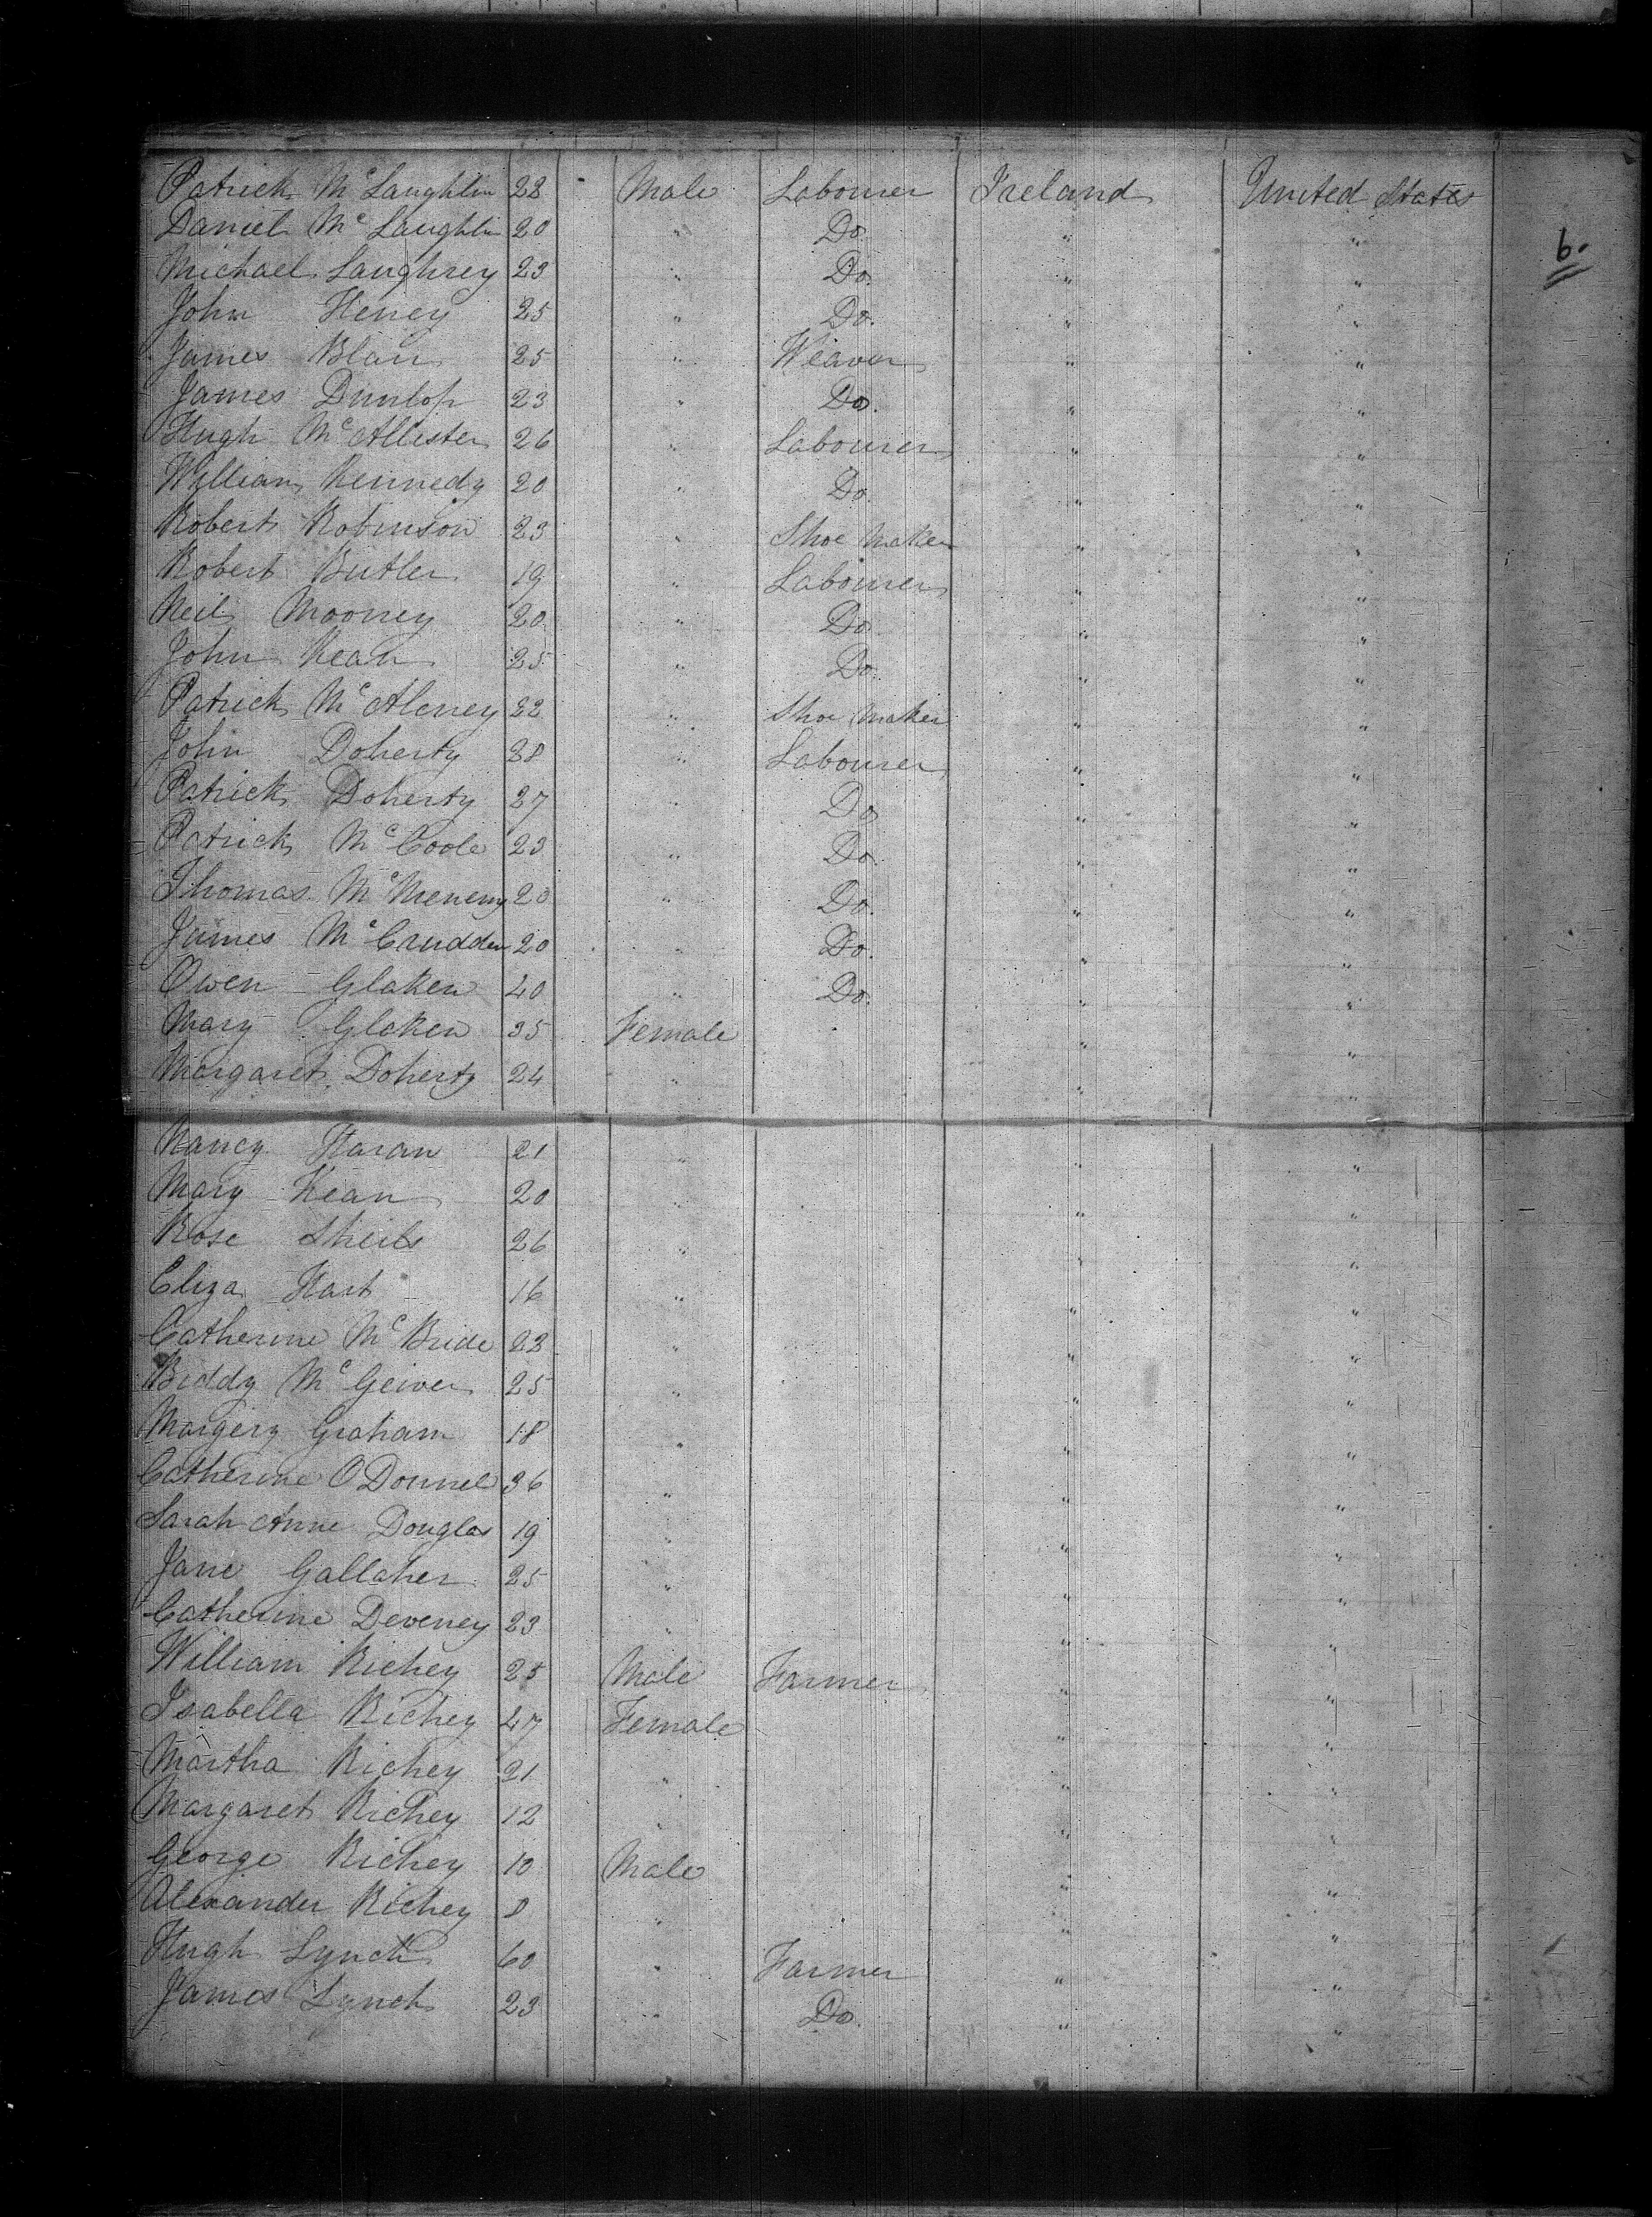 Patrick McLaughlin 22 Male Labourer Ireland United States
Daniel McLaughlin 20 " Do. " "
6.
Michael Laughrey 23 " Do. " "
John Heney 25 " Do. " "
James Blair 25 " Weaver " "
James Dunlop 23 " Do. " "
Hugh McAllister 26 " Labourer " "
William Kennedy 20 " Do. " "
Robert Robinson 23 " Shoe Maker " "
Robert Butler 19 " Labourer " "
Neil Mooney 20 " Do. " "
John Kean 25 " Do. " "
Patrick McAleney 22 " Shoe Maker " "
John Doherty 28 " Labourer " "
Patrick Doherty 27 " Do. " "
Patrick McCoole 23 " Do. " "
Thomas McMenemy 20 " Do. " "
James McCrudden 20 " Do. " "
Owen Glaken 40 " Do. " "
Mary Glaken 35 Female " "
Margaret Doherty 24 " " "
Nancy Haran 21 " " "
Mary Kean 20 " " "
Rose Sheils 26 " " "
Eliza Hart 16 " " "
Catherine McBride 22 " " "
Biddy McGeiver 25 " " "
Margery Graham 18 " " "
Catherine O'Donnel 36 " " "
Sarah Anne Douglas 19 " " "
Jane Gallaher 25 " " "
Catherine Deveney 23 " " "
William Richey 25 Male Farmer " "
Isabella Richey 47 Female " "
Martha Richey 21 " " "
Margaret Richey 12 " " "
George Richey 10 Male " "
Alexander Richey 8 " " "
Hugh Lynch 60 " Farmer " "
James Lynch 23 " Do. " "